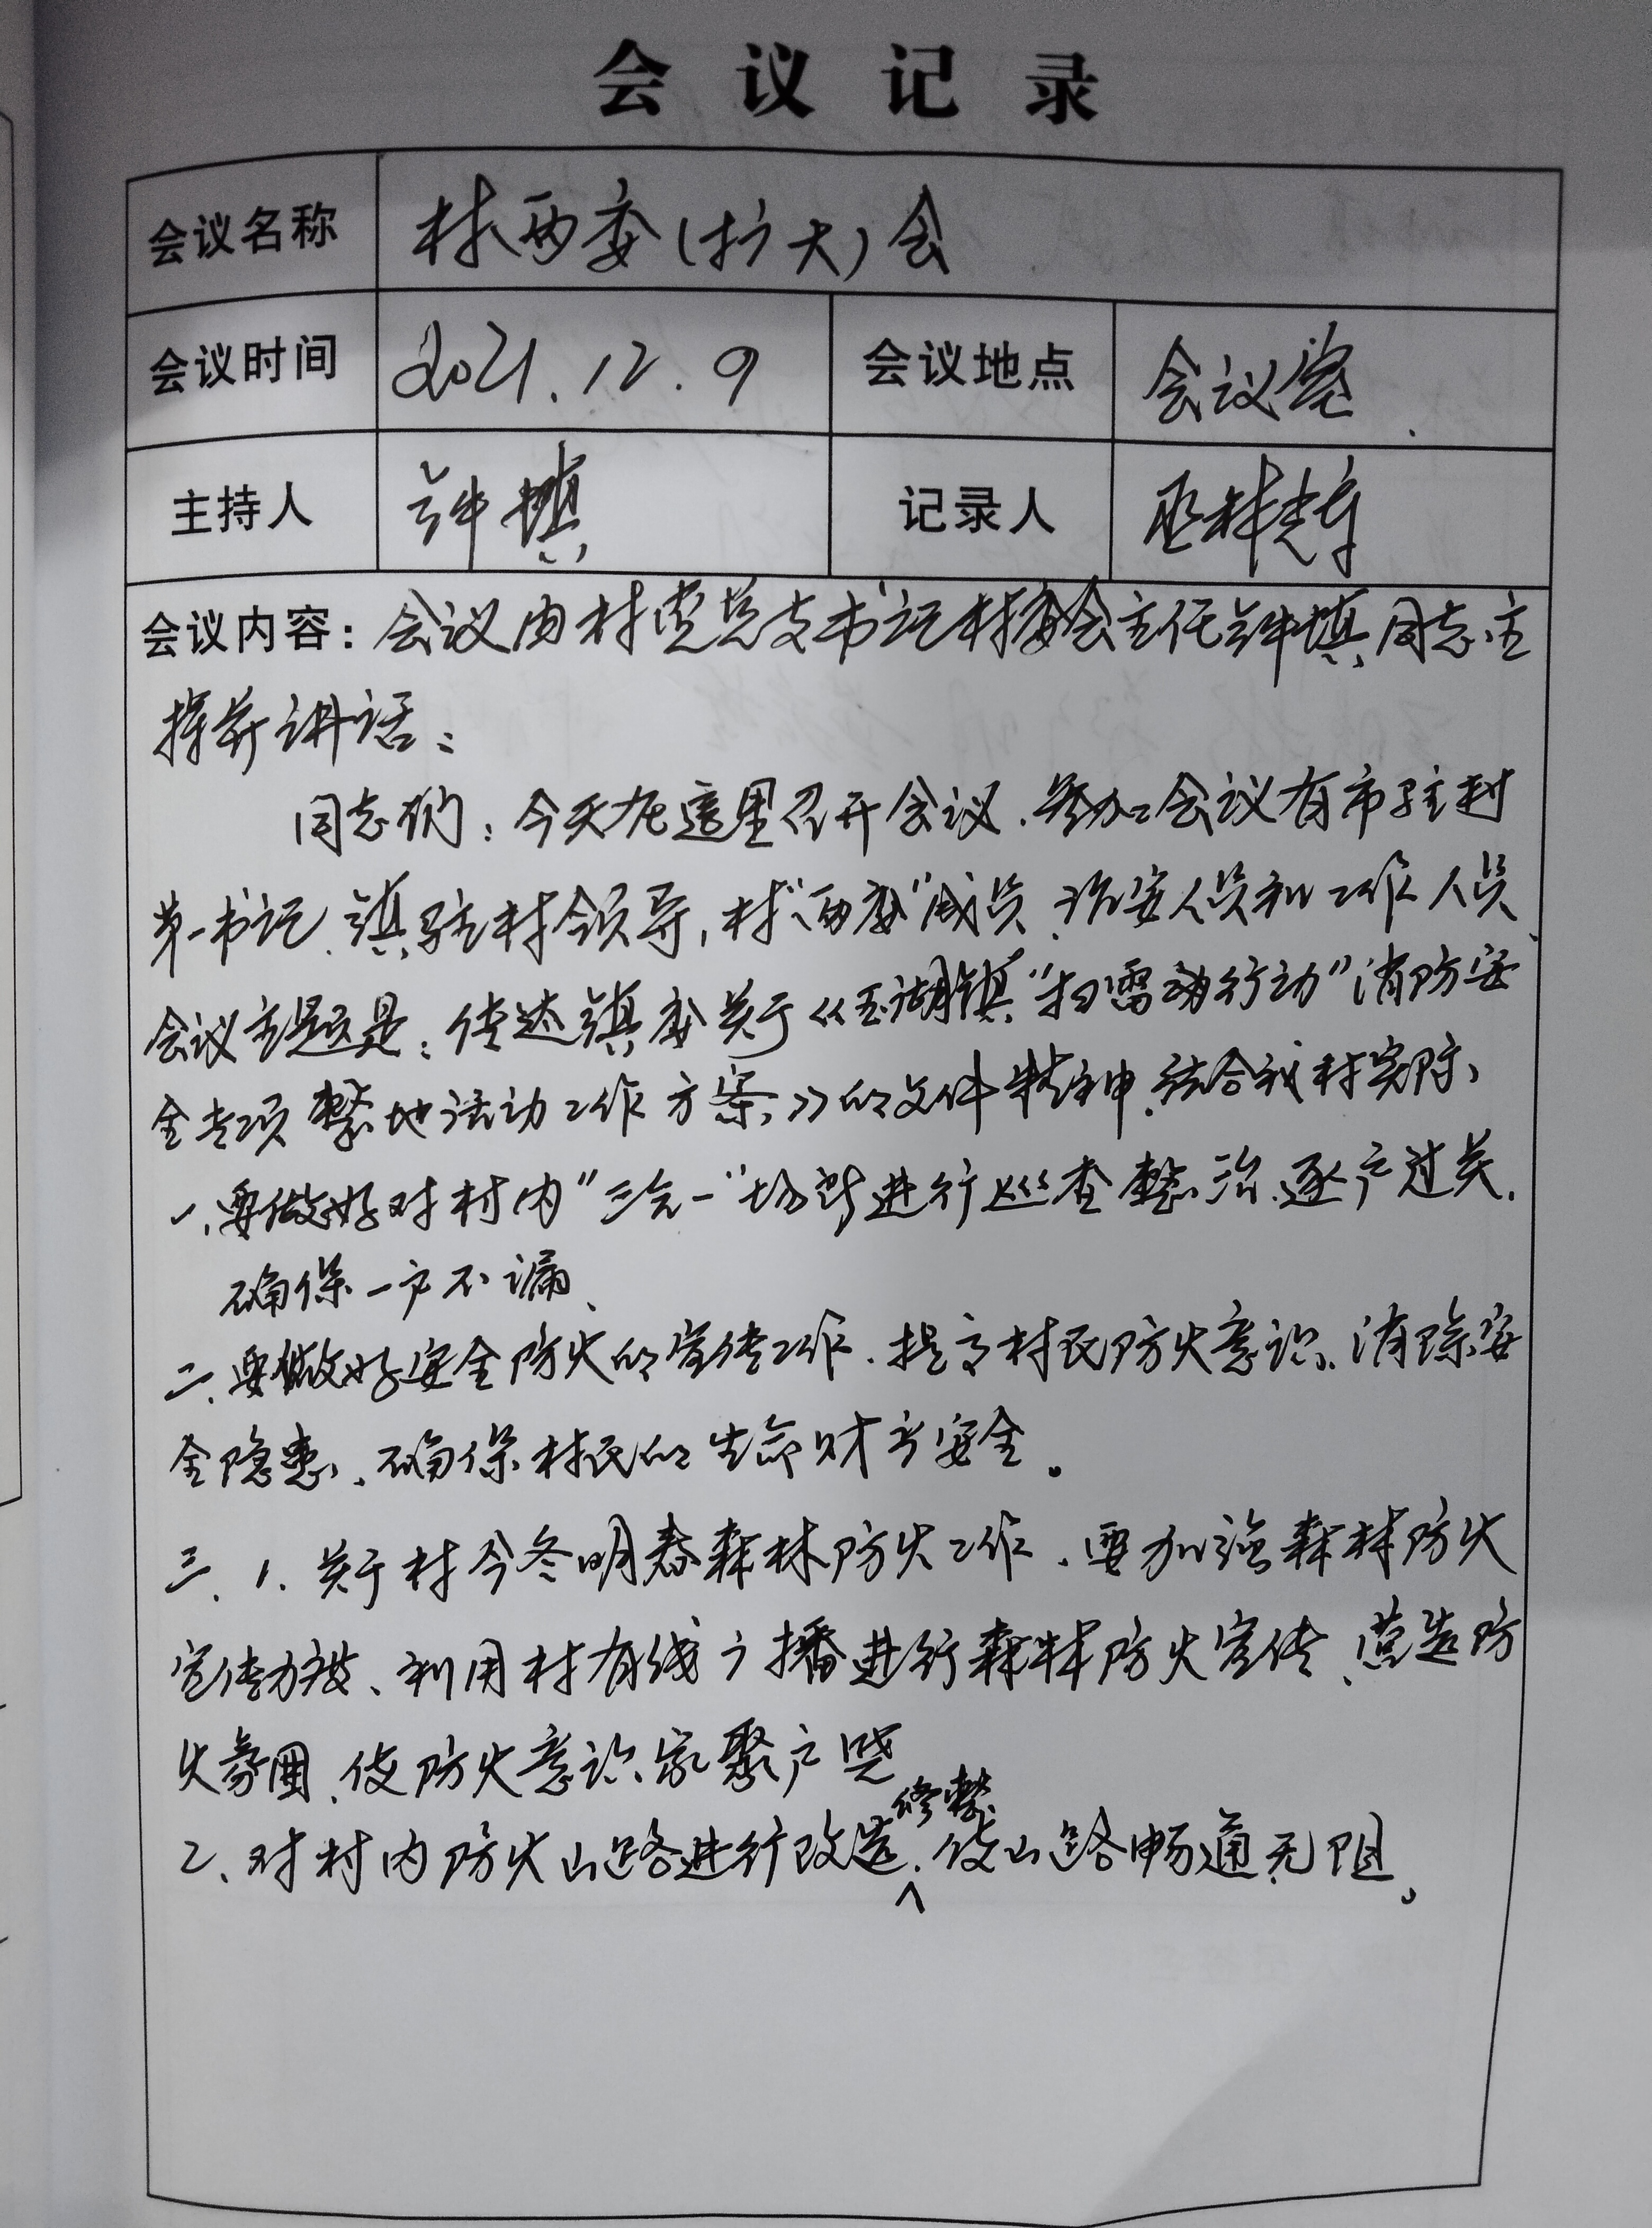 会议记录
会议名称 村两委(扩大)会
会议时间 2021.12.9 会议地点 会议室
主持人 许填 记录人 巫林
会议内容: 会议由村党总支书记村委会主任许填同志主
持并讲话:
同志们:今天在这里召开会议、参加会议有市驻村
第一书记、镇驻村领导,村"两委"成员、治安人员和工作人员、
会议主题是:传达镇委关于《玉湖镇"扫雷行动"消防安
全专项整地活动工作方案》的文件精神、结合我村实际、
一、要做好对村内"三合一"场所进行巡查整治、逐户过关、
确保一户不漏、
二、要做好安全防火的宣传工作、提高村民防火意识、消除安
全隐患、确保村民的生命财产安全。
三、1、关于村今冬明春森林防火工作、要加强森林防火
宣传力度、利用村有线广播进行森林防火宣传、营造防
火氛围、使防火意识家 户
2、对村内防火山路进行改造修整、使山路畅通无阻。